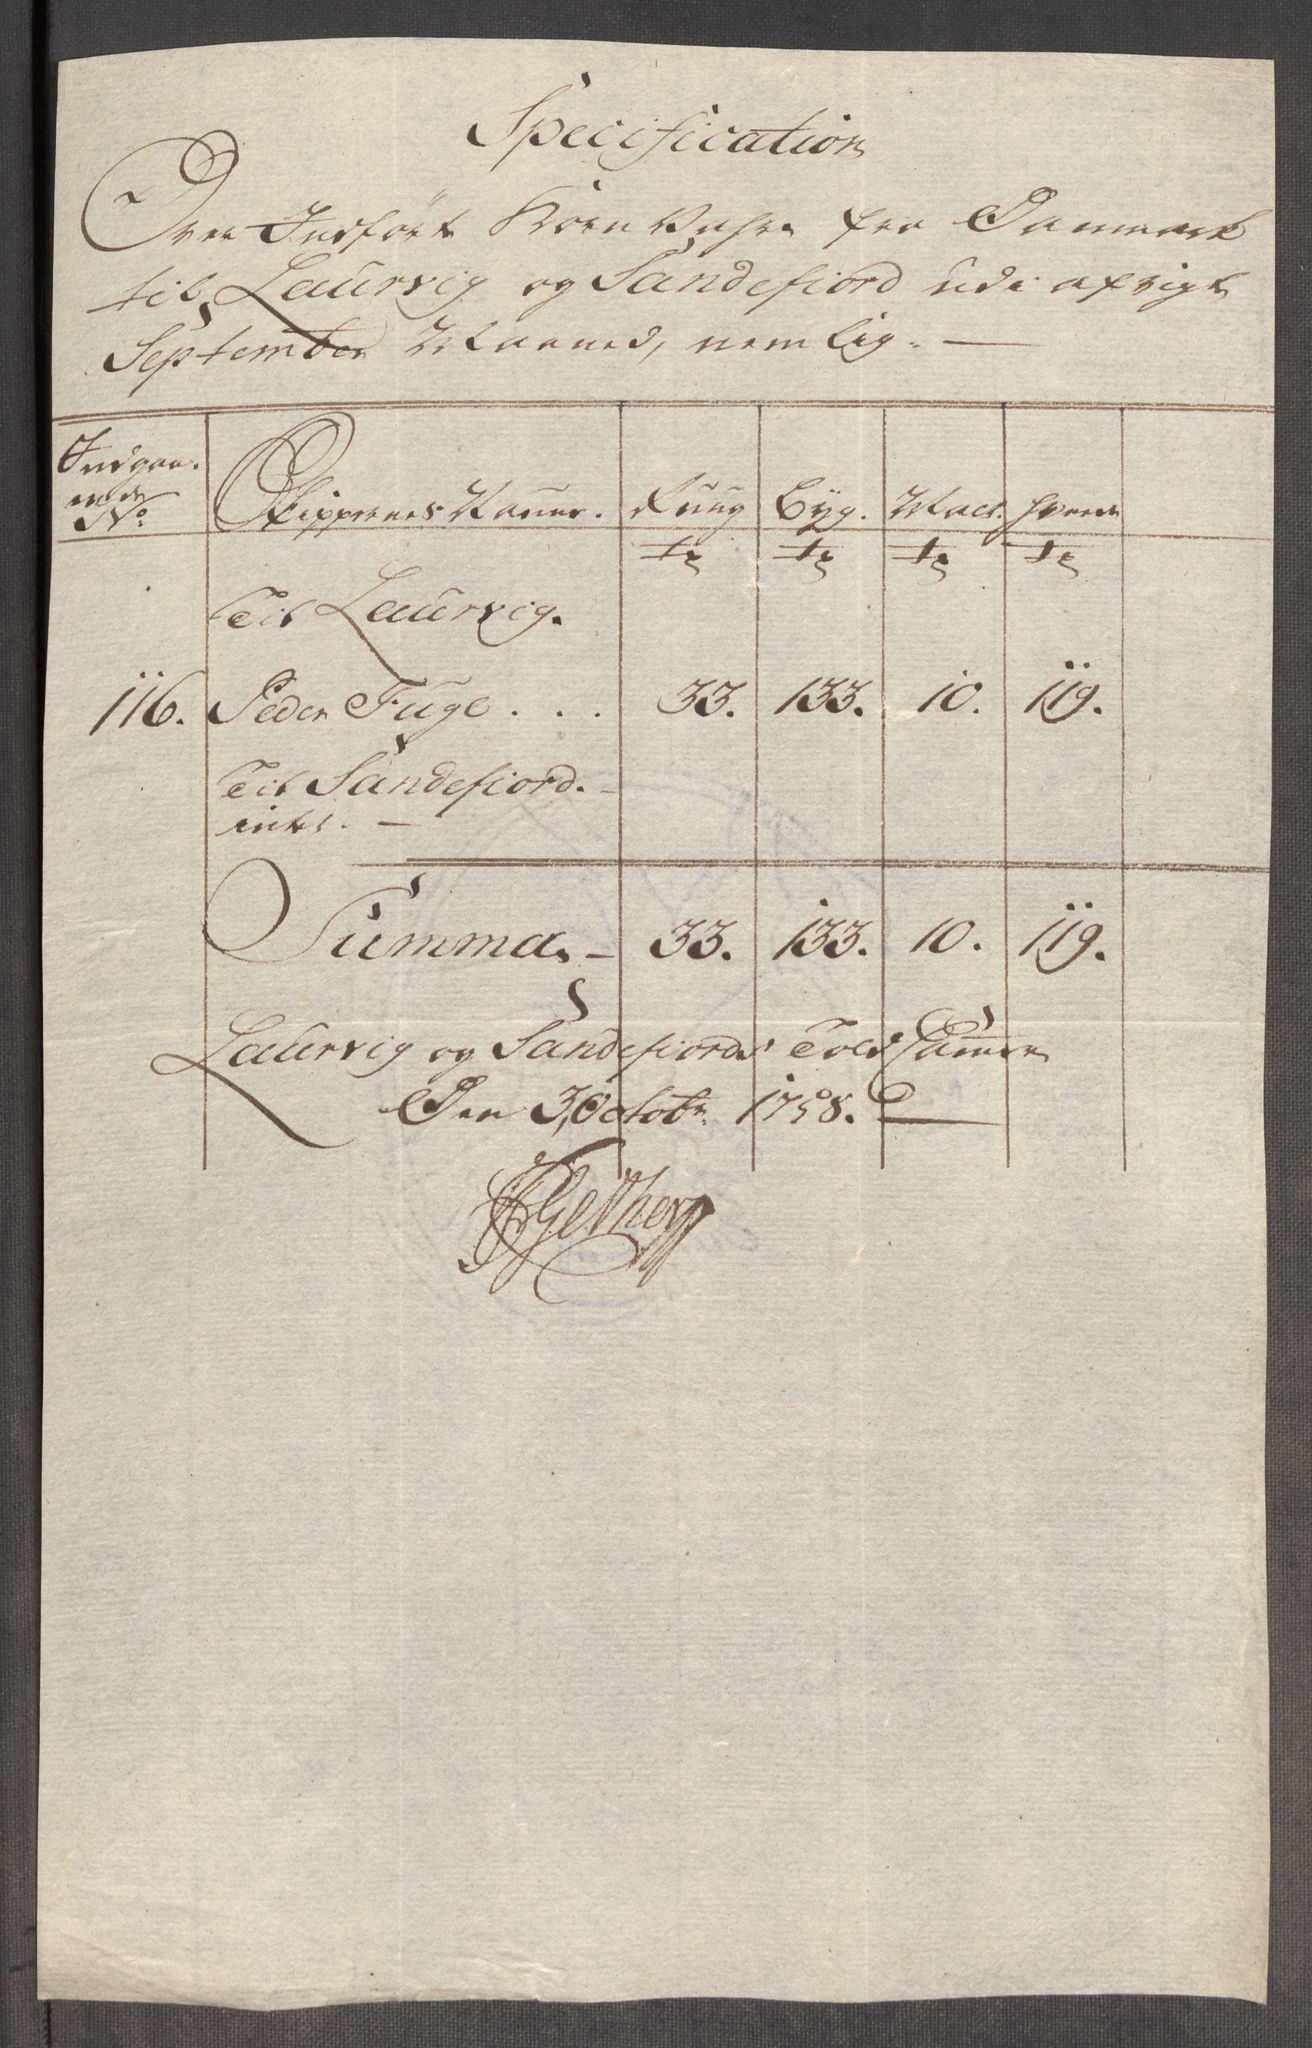 Specification
Over Indført Korn Vahre fra Danmark
til Laurvig og Sandefiord udi afvigt
September Maaned, nemlig. —
Indgaa-
ende No. Skippernes Naune. Ruug Byg. Malt. Havre
tr tr tr tr
Til Laurvig.
116. Peder Fugl . . . 33. 133. 10. 119.
Til Sandefiord. —
intet. —
Summa. — 33. 133. 10. 119.
Laurvig og Sandefiords Told Cammer
Den 3 Octobr. 1758.